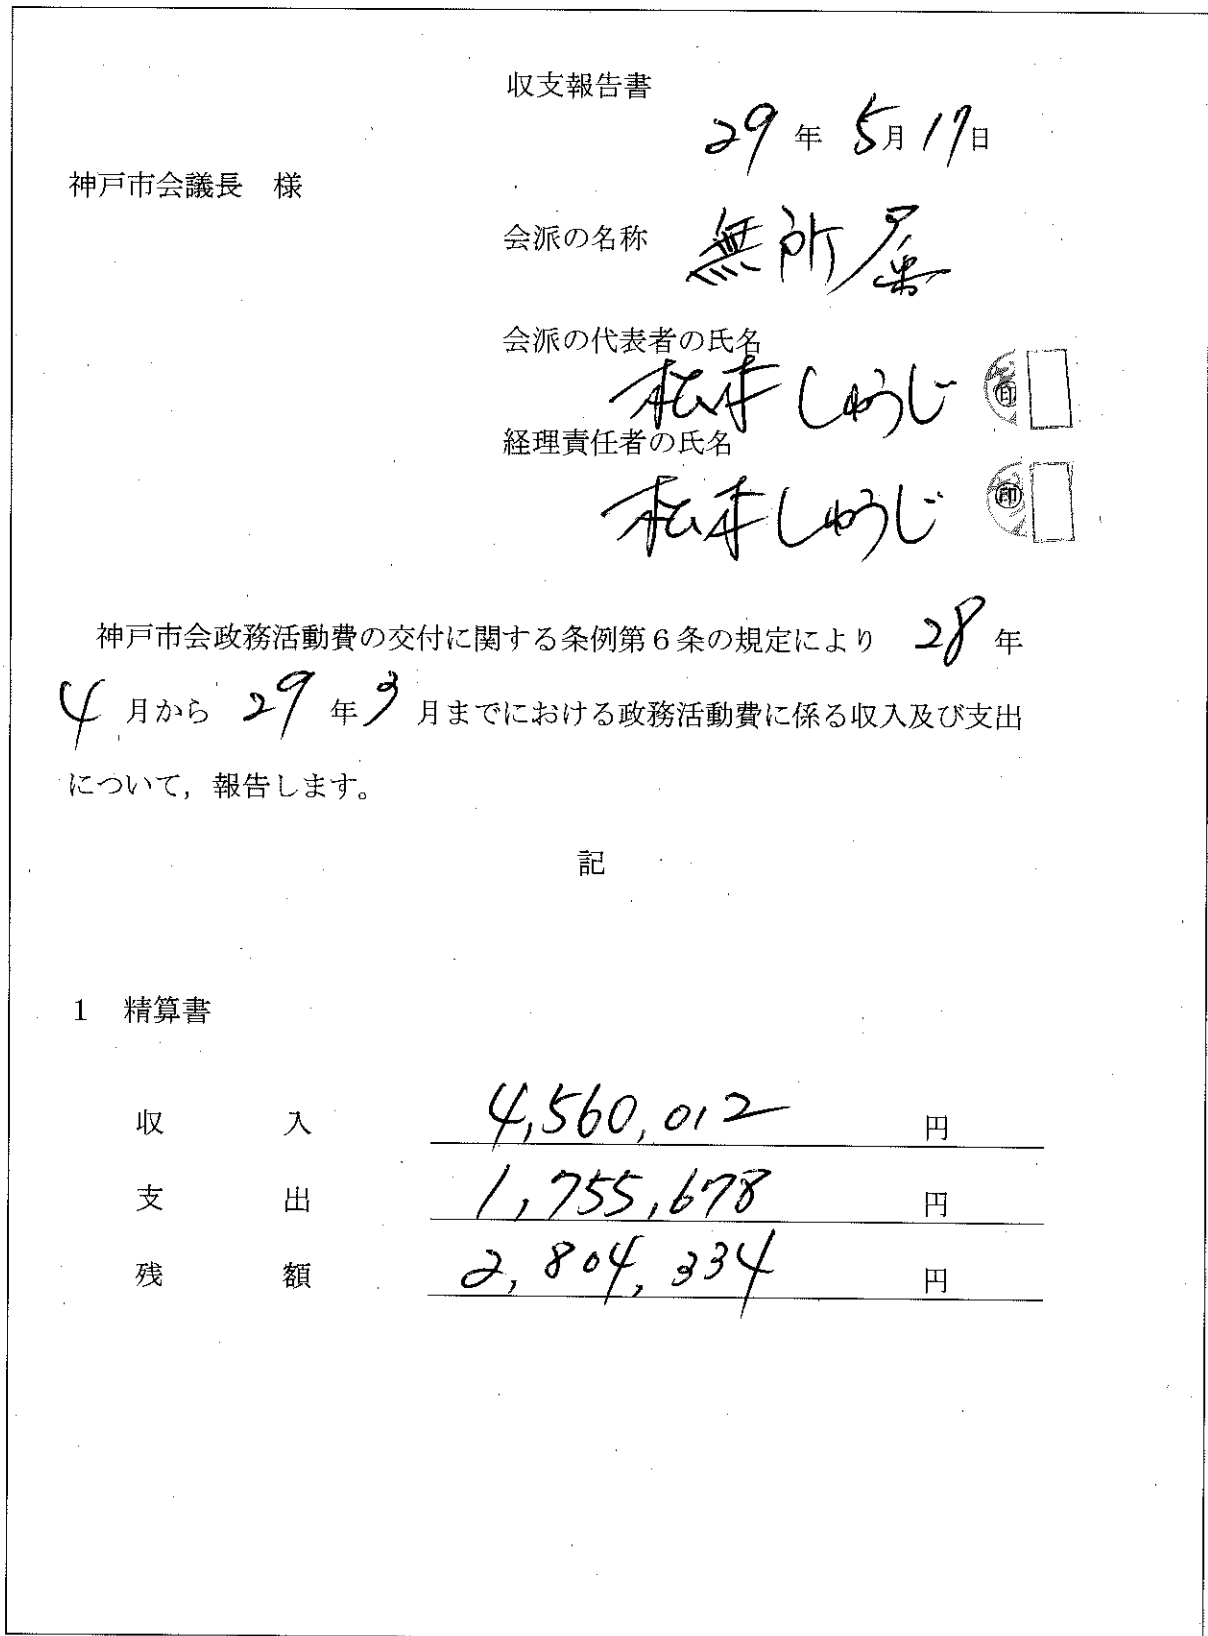 収支報告書
29年5月17日
神戸市会議長 様
会派の名称 無所属
会派の代表者の氏名
松本しゅうじ 印
経理責任者の氏名
松本しゅうじ 印
神戸市会政務活動費の交付に関する条例第6条の規定により 28年
4月から 29年3月までにおける政務活動費に係る収入及び支出
について，報告します。
記
1 精算書
収入 4,560,012 円
支出 1,755,678 円
残額 2,804,334 円